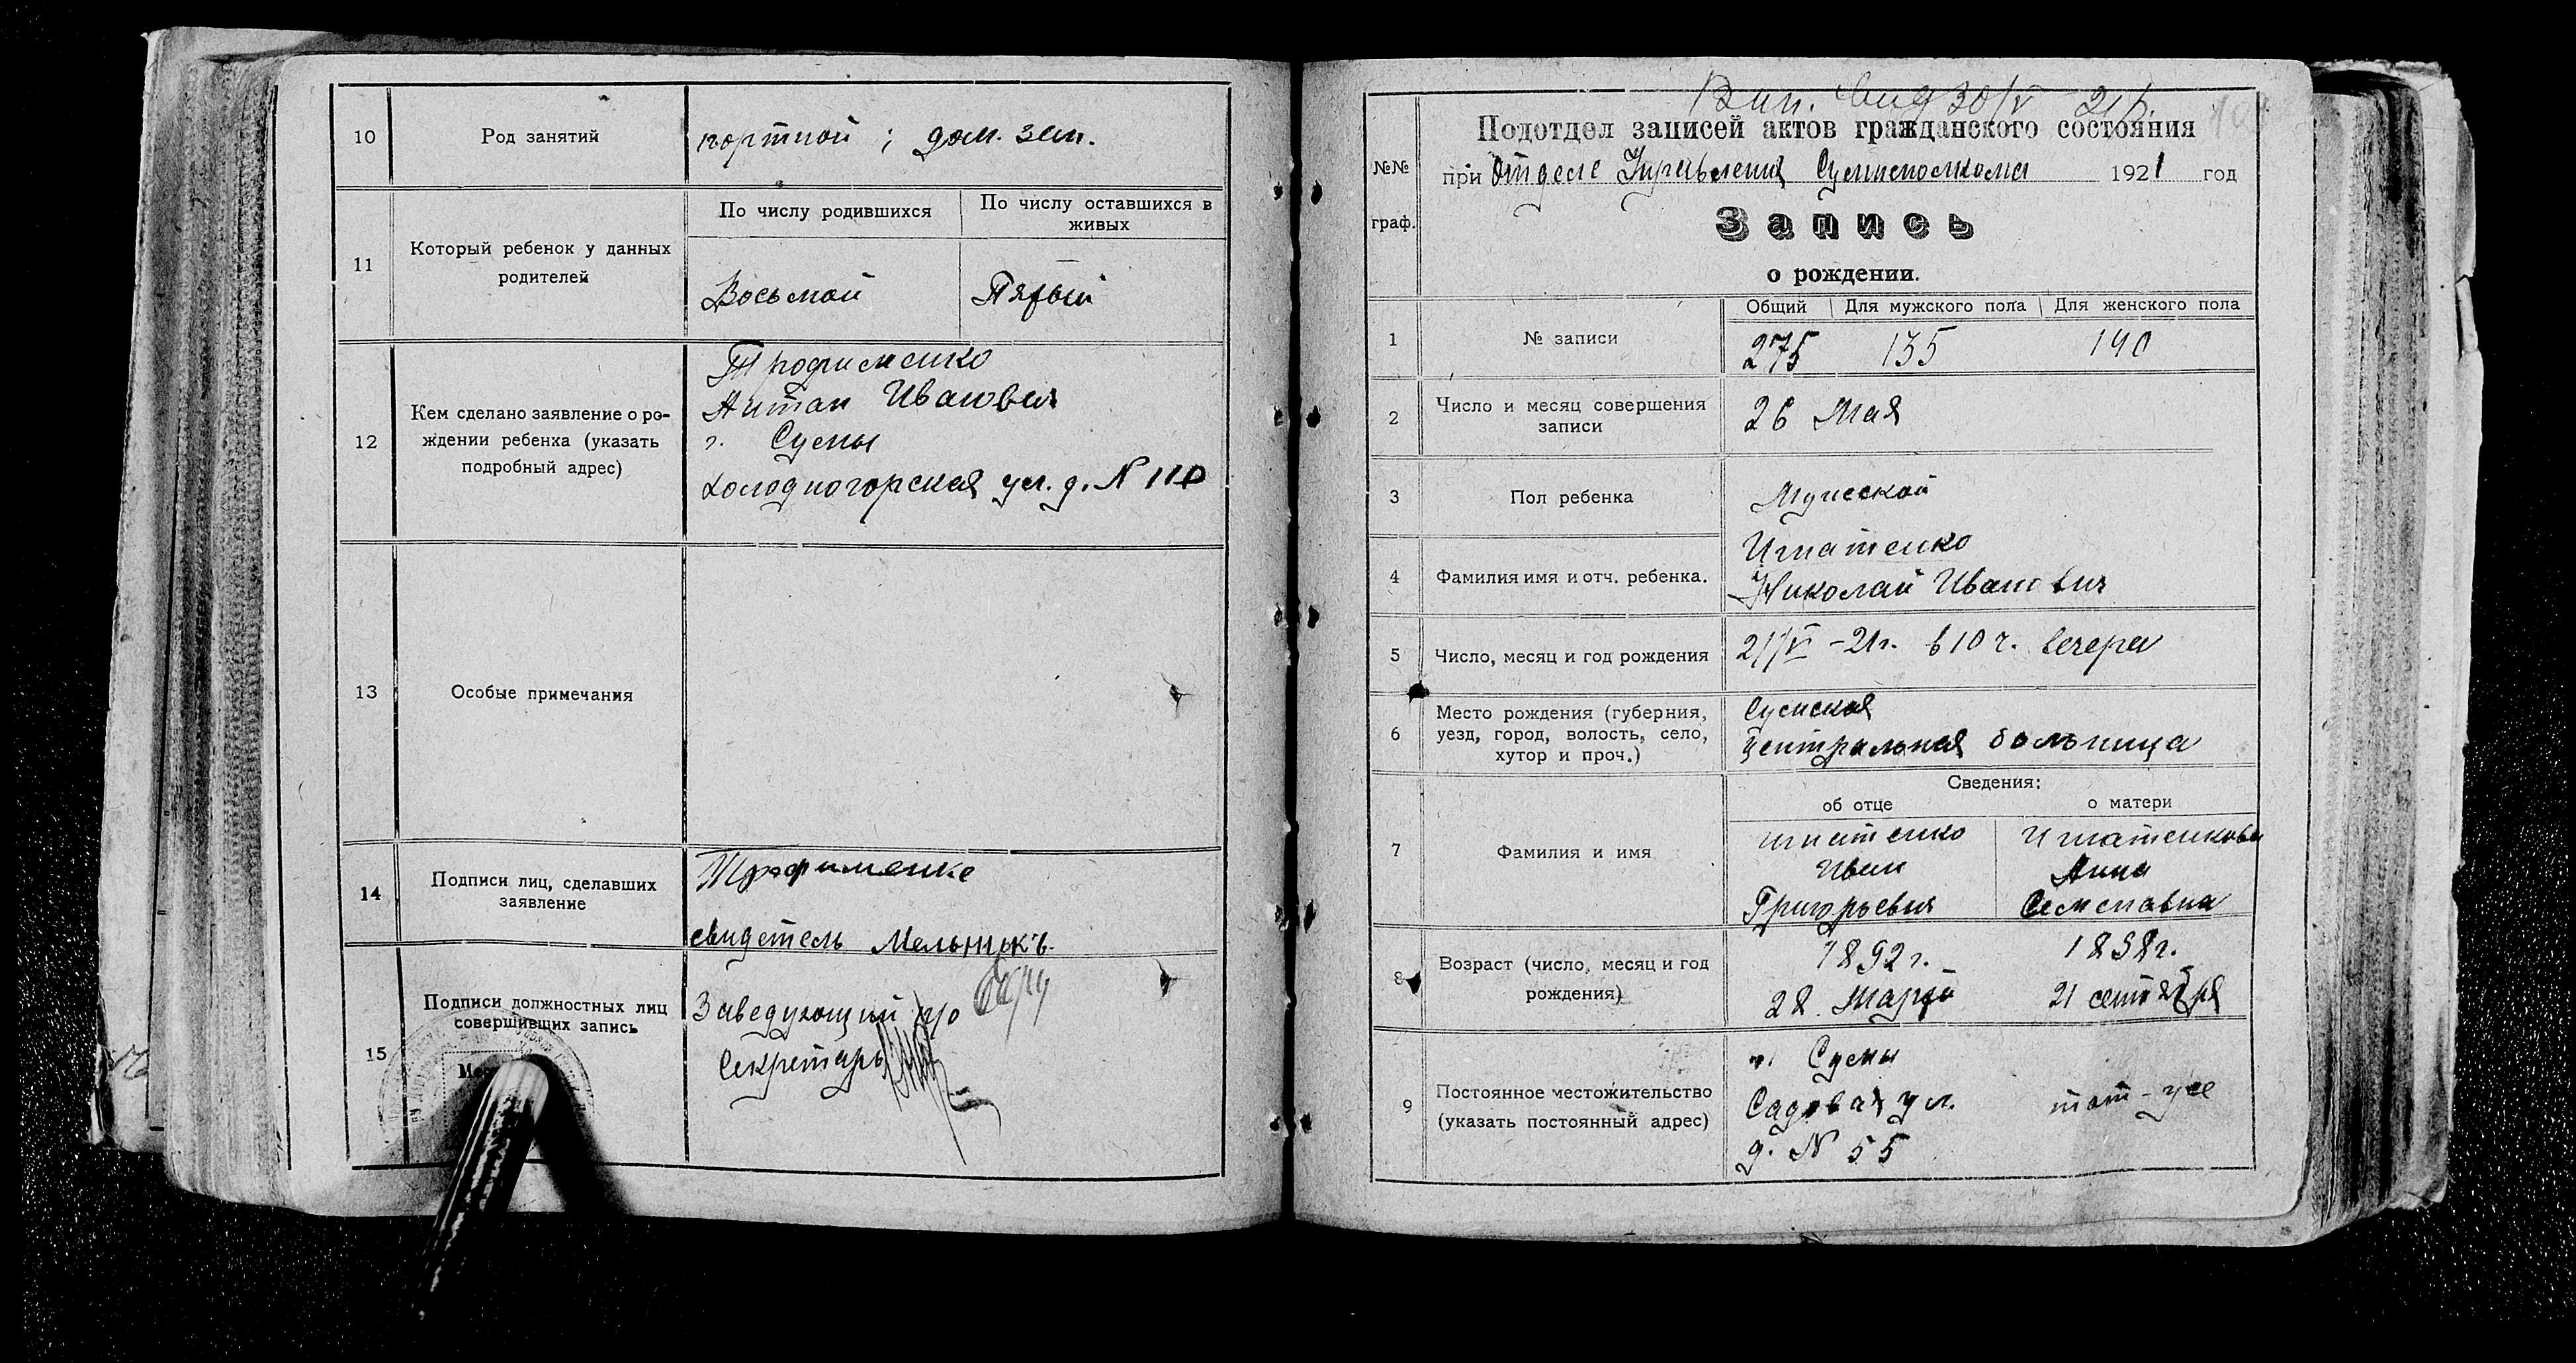 10
Род занятий
портной ; дом. зан.
11
Который ребенок у данных
родителей
По числу родившихся
По числу оставшихся в
живых
Восьмой
Пятый
12
Кем сделано заявление о ро-
ждении ребенка (указать
подробный адрес)
Трофименко
Антон Иванович
г. Сумы
Холодногорская ул. д. N 110
13
Особые примечания
14
Подписи лиц, сделавших
заявление
Трофименко
свидетель Мельникъ
15
Подписи должностных лиц
совершивших запись
Заведующий п/о
Секретарь
Подотдел записей актов гражданского состояния
№№
граф.
при Отделе Управления Сумисполкома 1921 год
Запись
о рождении.
1
№ записи
Общий Для мужского пола Для женского пола
275 135 140
2
Число и месяц совершения
записи
26 Мая
3
Пол ребенка
Мужской
4
Фамилия имя и отч. ребенка.
Игнатенко
Николай Иванович
5
Число, месяц и год рождения
21/V -21г. в 10 ч. вечера
6
Место рождения (губерния,
уезд, город, волость, село,
хутор и проч.)
Сумская
центральная больница
Сведения:
об отце
о матери
7
Фамилия и имя
Игнатенко
Иван
Григорьевич
Игнатенкова
Анна
Семеновна
8
Возраст (число, месяц и год
рождения)
1892 г.
28 Марта
1898г.
21 сентября
9
Постоянное местожительство
(указать постоянный адрес)
г. Сумы
Садовая ул.
д. N 55
там-же